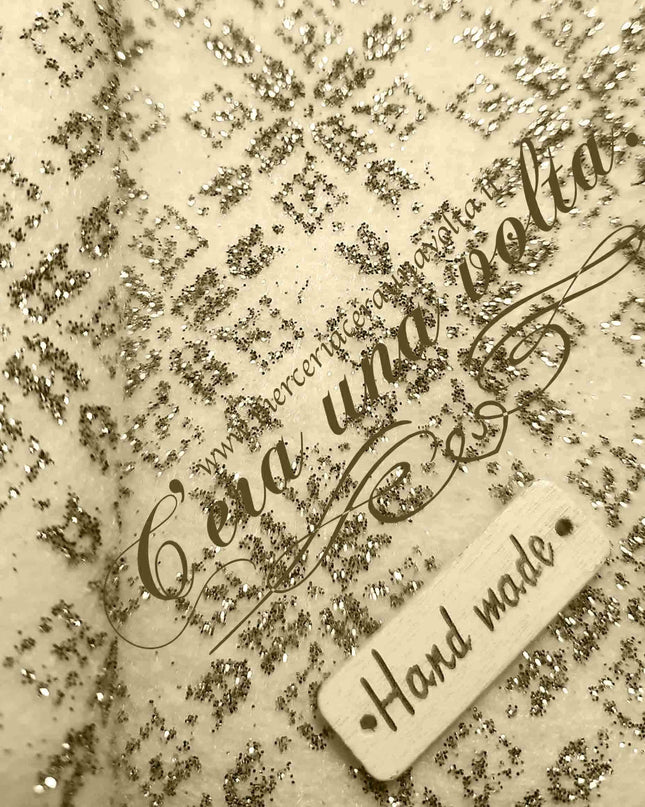 www.merceriaceraunavolta.it
C'era una volta.
Hand made